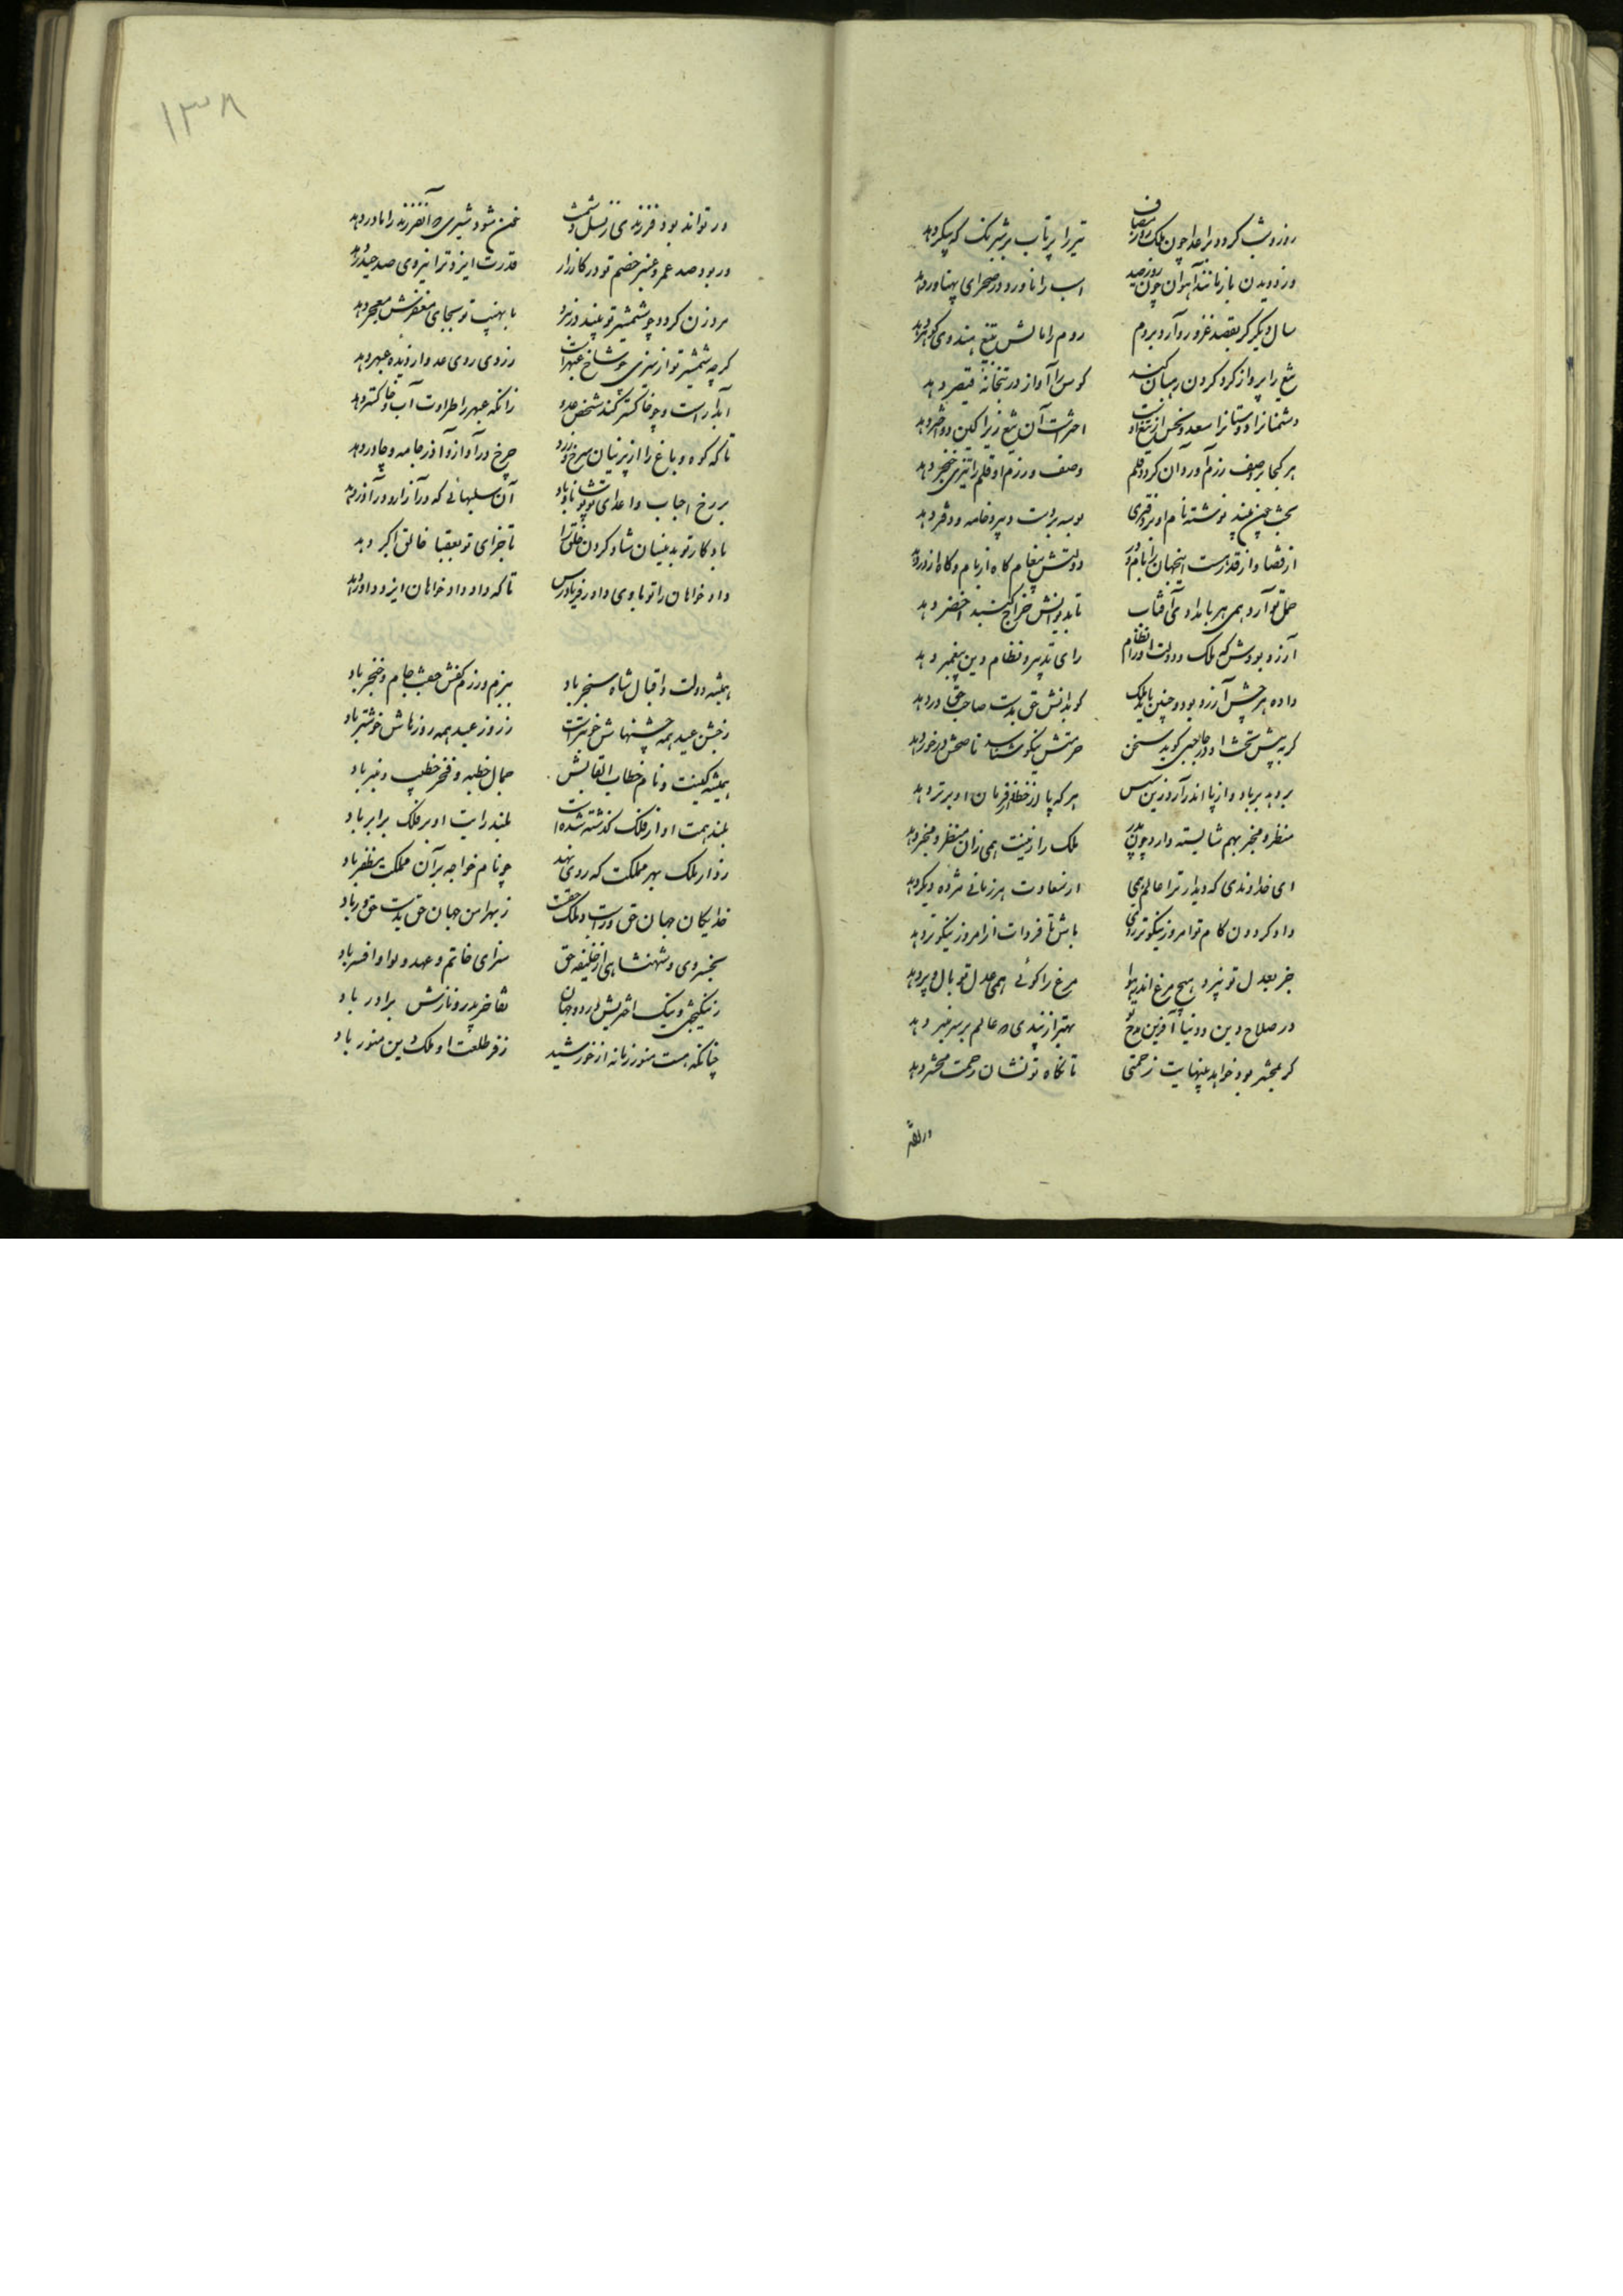 روز و شب کردد بر اعدا چون ملک روز مصاف
تیر را پرتاب بر شبرنک که پیکر دهد
وز دویدن باز مانند آهوان چون روز صید
اسب را ناورد در صحرای پهناور دهد
سال دیکر کر بقصد غزو رو آرد بروم
روم را مالش بتیغ هندوی کوهر دهد
تیغ را پرواز کرد کردن رهبان کند
کوس را آواز در بتخانهٔ قیصر دهد
دشمنانرا دوستانرا سعد و نحس از تیغ اوست
اخترست آن تیغ زیرا کین دو اختر دهد
هر کجا بر وصف رزم او روان کردد قلم
وصف رزم او قلم را تیزی خنجر دهد
بخت چون بیند نوشته نام او بر دفتری
بوسه بر دست دبیر و خامه و دفتر دهد
از قضا و از قدر هست اینجهان را بام و در
دولتش پیغام کاه از بام و کاه از در دهد
حمل تو آرد همی هر بامدادی آفتاب
تا بدیوانش خراج کنبد اخضر دهد
آرزو بودش که ملک و دولت او را نظام
رای و تدبیر و نظام دین پیغمبر دهد
داده هر چش آرزو بود و چنین باید ملک
کو بدانش حق بدست صاحب حق در دهد
کر به پیش تخت او در حاجبی کوید سخن
حرمتش نیکو شناسد پاسخش در خور دهد
بر دهد بر باد و از پا اندر آرد زین سپس
هر که پا از خطهٔ فرمان او برتر دهد
منظر و مخبر بهم شایسته دارد چون پدر
ملک را زینت همی زان منظر و مخبر دهد
ای خداوندی که دیدار ترا عالم همی
از سعادت هر زمانی مژده دیکر دهد
داد کردون کام تو امروز نیکوتر ز دی
باش تا فردات از امروز نیکوتر دهد
جز بعدل تو نپرد هیچ مرغ اندر هوا
مرغ را کوئی همی عدل تو بال و پر دهد
در صلاح دین و دنیا آفرین و مدح تو
بهتر از پندی که عالم بر سر منبر دهد
کر بمحشر بود خواهد بینهایت زحمتی
تا نکاه تو نشان زحمت محشر دهد
در تواند بود فرزندی ز نسل دشمنت
خون شود شیری که آنفرزند را مادر دهد
ور بود صد عمرو عنتر خصم تو در کارزار
قدرت ایزد ترا نیروی صد حیدر دهد
مرد زن کردد چو شمشیر تو بیند در نبرد
با نهیب تو بجای مغفرش معجر دهد
کرچه شمشیر تو از سبزی چو شاخ عبهر است
زردی روی عدو از دیده عبهر دهد
آبدار است و چو خاکستر کند شخص عدو
زانکه عبهر را طراوت آب و خاکستر دهد
تا که کوه و باغ را از پرنیان سرخ و زرد
چرخ در آذار و آذر جامه و چادر دهد
بر رخ احباب و اعدای تو پوشاناد باد
آن سلبهائی که در آزار و در آذر دهد
باد کار تو بدینسان شاد کردن خلق را
تا جزای تو بعقبا خالق اکبر دهد
داد خواهان را تو بادی داور فریادرس
تا که داد داد خواهان ایزد داور دهد
همیشه دولت و اقبال شاه سنجر باد
ببزم و رزم کفش جفت جام و خنجر باد
ز جشن عید همه جشنهاش خوبتر است
ز روز عید همه روزهاش خوشتر باد
همیشه کنیت و نام و خطاب و القابش
جمال خطبه و فخر خطیب و منبر باد
بلند همت او از فلک کذشته شده است
بلند رایت او بر فلک برابر باد
ز دار ملک بهر مملکت که روی نهد
چو نام خواجه بر آن مملکت مظفر باد
خدایکان جهان حق ور است و ملک حقست
ز بهر امن جهان حق بدست حق ور باد
بخسروی و شهنشاهی از خلیفه حق
سزای خاتم و عهد و لوا و افسر باد
ز نیکبختی و نیک اختریش در دو جهان
تفاخر پدر و نازش برادر باد
چنانکه هست منور زمانه از خورشید
ز فر طلعت او ملک و دین منور باد
۱۳۸